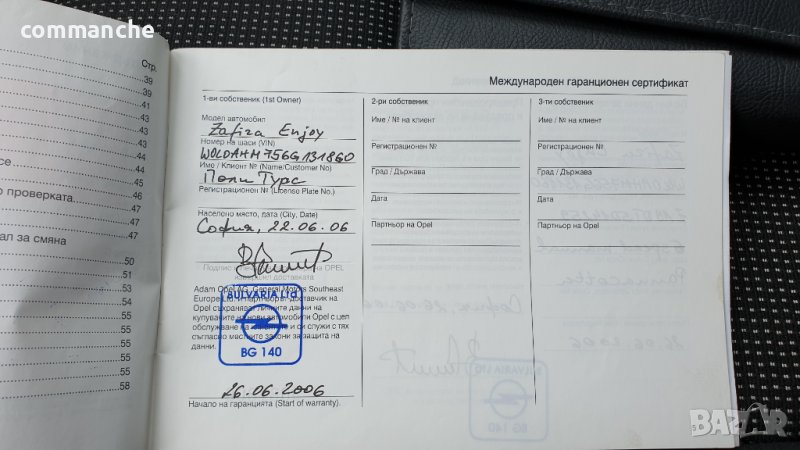 commanche
Стр.
39
39
41
43
43
43
44
се
45
46
о проверката.
47
47
ал за смяна
50
51
53
54
55
55
55
58
Международен гаранционен сертификат
1-ви собственик (1st Owner)
Модел автомобил
Zafira Enjoy
Номер на шаси (VIN)
W0L0AHM756G131860
Име / Клиент № (Name/Customer No)
Поли Турс
Регистрационен № (License Plate No.)
Населено място, дата (City, Date)
София, 22.06.06
Adam Opel AG, General Motors Southeast
Europe Ltd и партньор/доставчик на
Opel съхраняват личните данни на
купувачите на нови автомобили Opel с цел
обслужване на клиенти и си служи с тях
съгласно местните закони за защита на
данни.
BULVARIA LTD
BG 140
26.06.2006
Начало на гаранцията (Start of warranty).
2-ри собственик
Име / № на клиент
Регистрационен №
Град / Държава
Дата
Партньор на Opel
3-ти собственик
Име / № на клиент
Регистрационен №
Град / Държава
Дата
Партньор на Opel
BAZAR